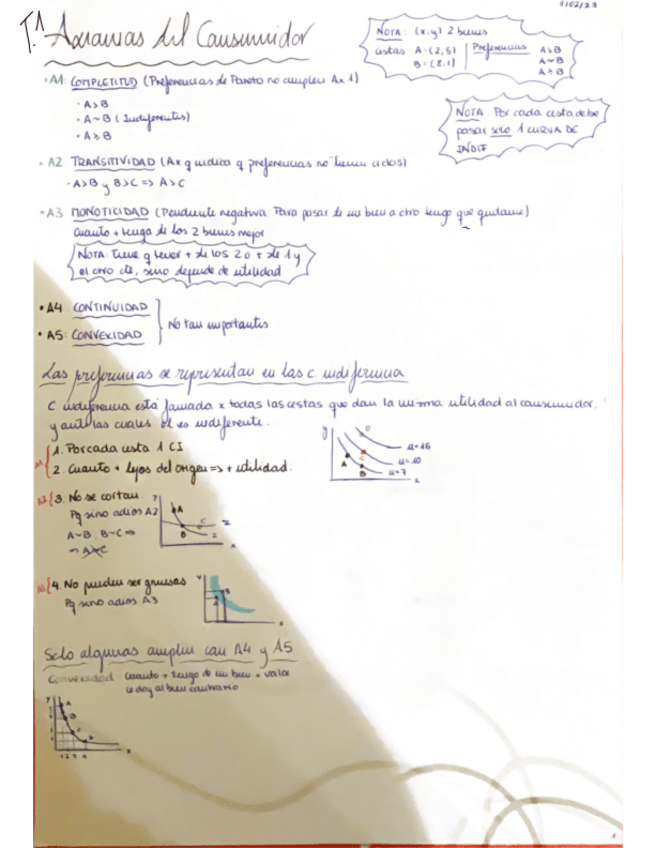 1/02/23
T.1 Axiomas del Consumidor
NOTA: (x,y) 2 bienes
cestas A=(2,5) | Preferencias A>B
B=(8,1) A~B
A≥B
· A1: COMPLETITUD (Preferencias de Pareto no cumplen Ax 1)
· A>B
· A~B (Indiferentes)
· A≥B
NOTA Por cada cesta debe
pasar solo 1 CURVA DE
INDIF
· A2 TRANSITIVIDAD (Ax q indica q preferencias no tienen ciclos)
· A>B y B>C => A>C
· A3 MONOTICIDAD (Pendiente negativa Para pasar de un bien a otro tengo que quitarme)
Cuanto + tenga de los 2 bienes mejor
NOTA: Tiene q tener + de los 2 o + de 1 y
el otro cte, sino depende de utilidad
· A4 CONTINUIDAD
· A5: CONVEXIDAD
No tan importantes
Las preferencias se representan en las c indiferencia
C indiferencia está formada x todas las cestas que dan la misma utilidad al consumidor,
y ante las cuales él es indiferente.
1. Por cada cesta 1 CI
2 Cuanto + lejos del origen => + utilidad.
y
A
C
B
u=15
u=10
u=7
x
3. No se cortan.
Pq sino adios A2
A~B, B~C =>
A~C
Y
A
B
C
x
4. No pueden ser gruesas
Pq sino adios A3
Y
A
B
x
Solo algunas cumplen con A4 y A5
Convexidad Cuanto + tengo de un bien + valor
le doy al bien contrario
Y
A
B
C
x
1 2 3 4
1